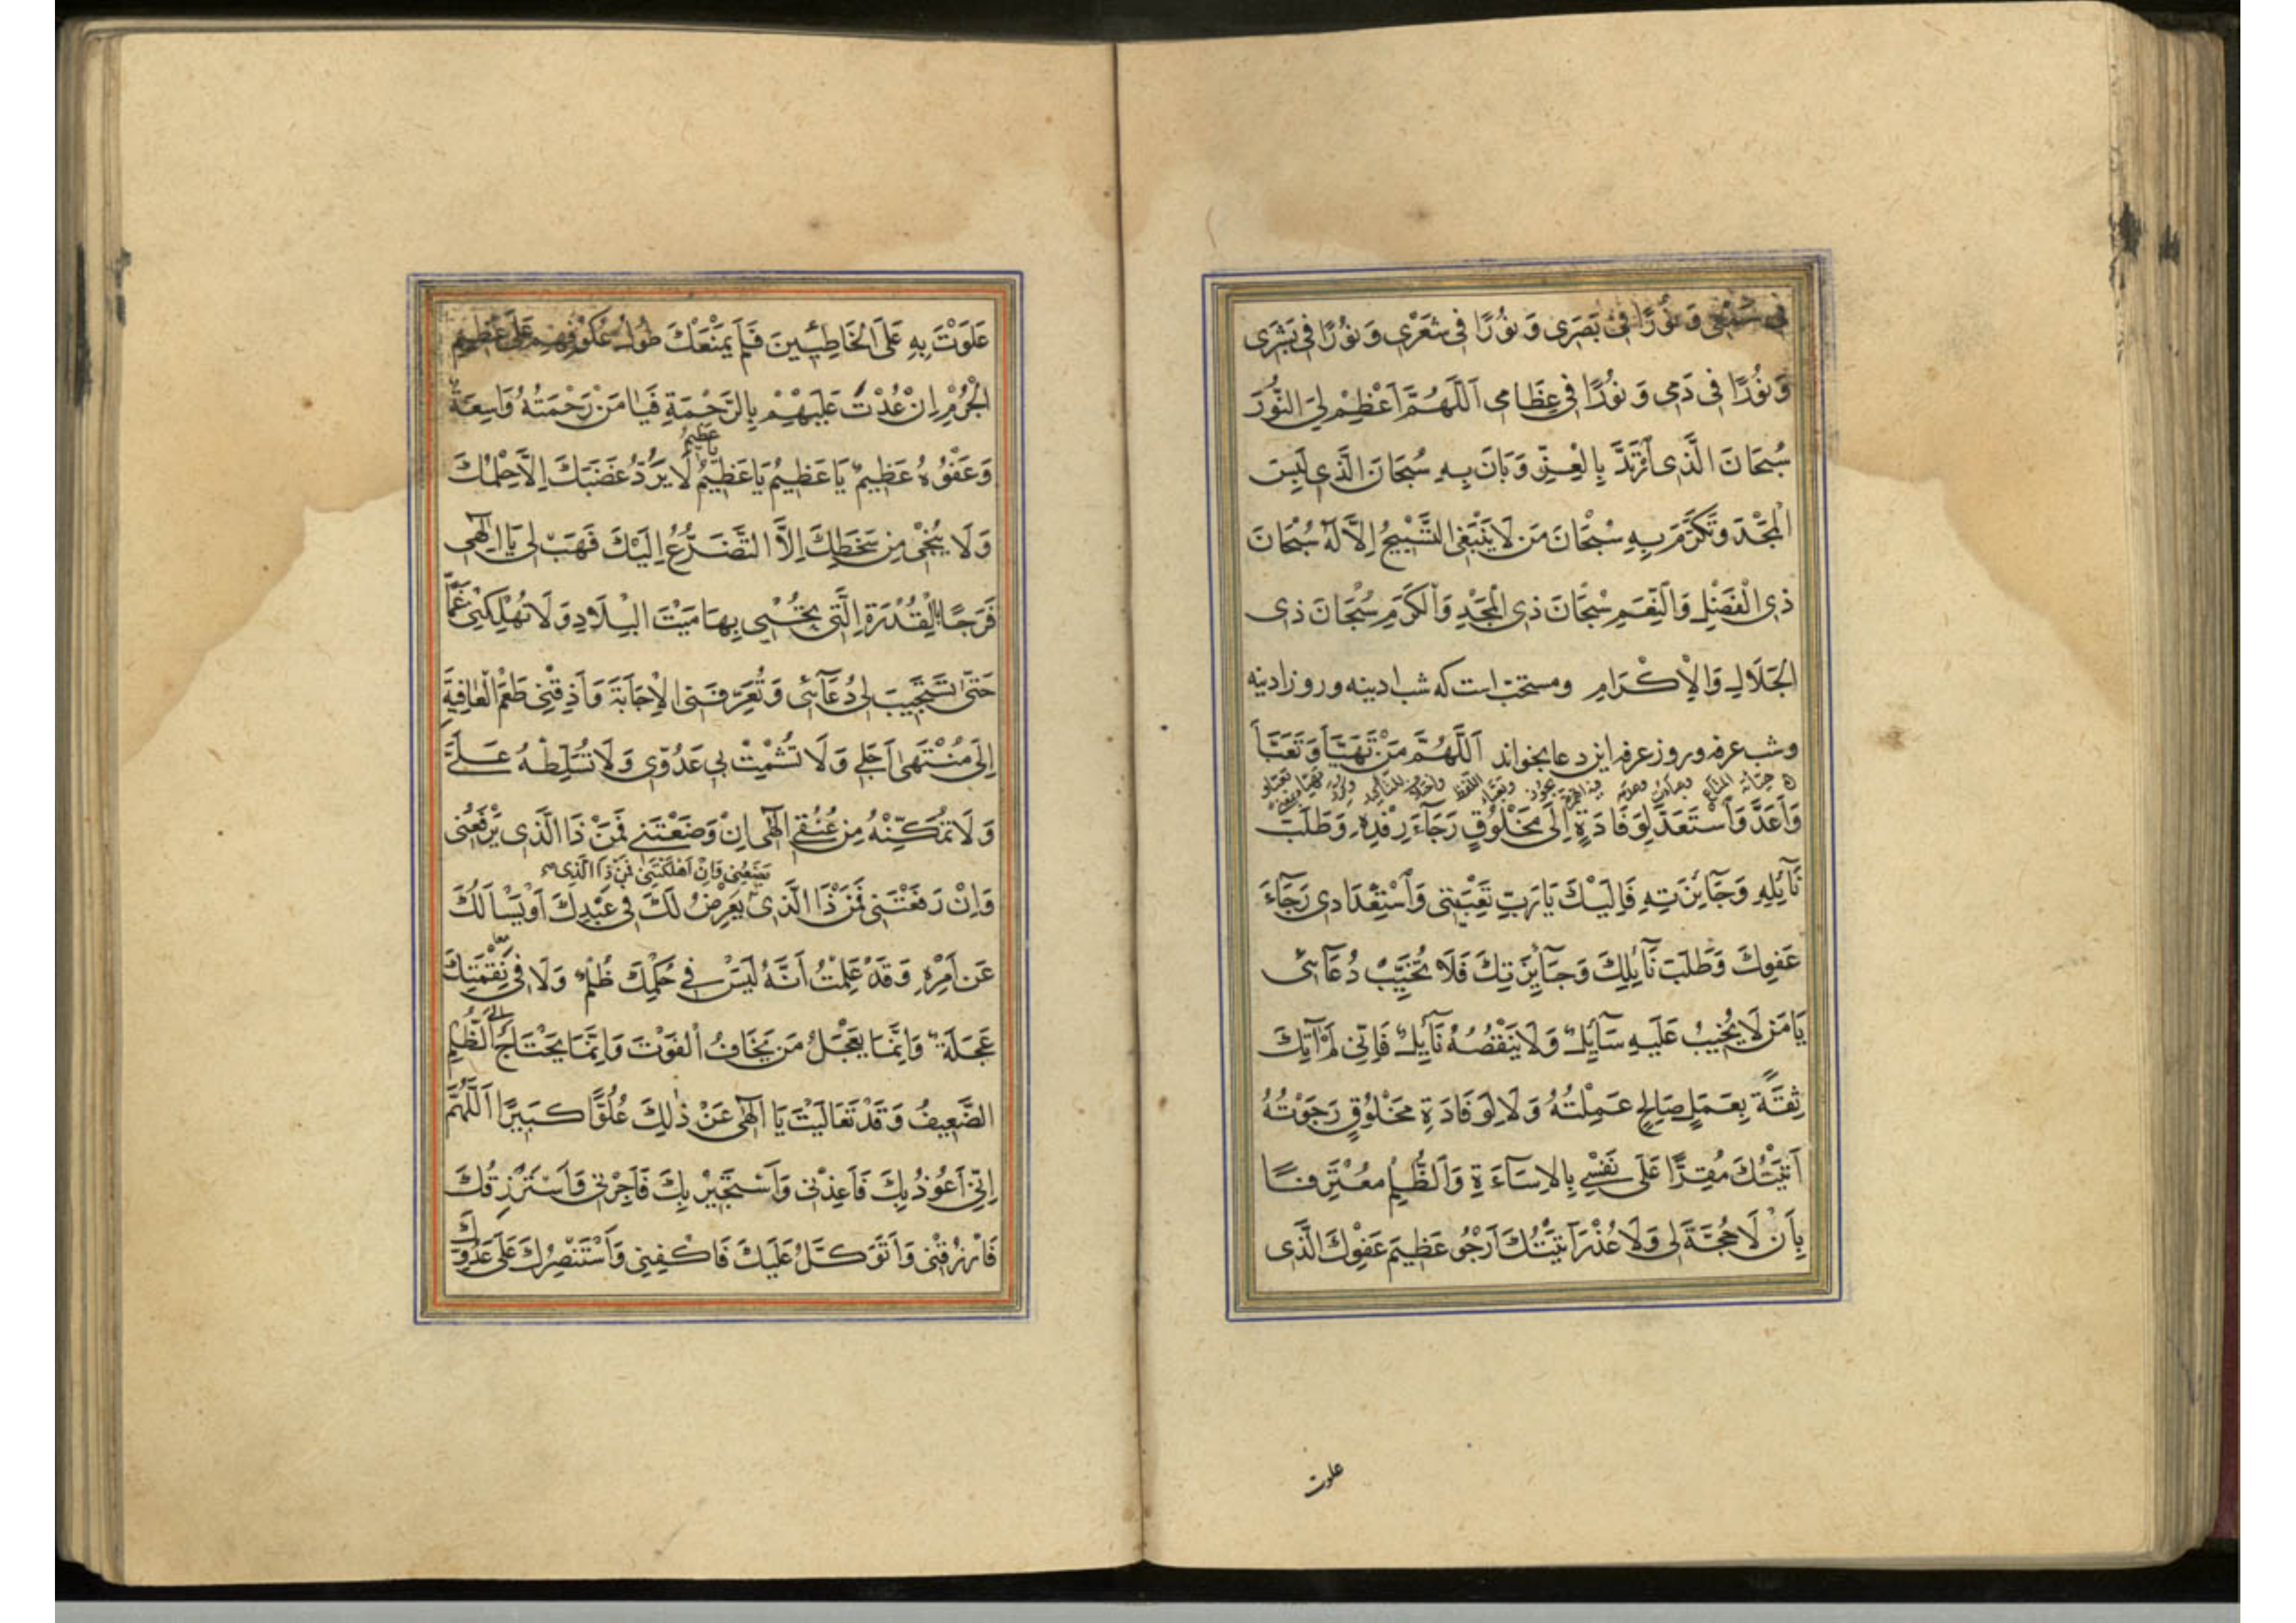 فِي سَمْعِي وَ نُورًا فِي بَصَرِي وَ نُورًا فِي شَعْرِي وَ نُورًا فِي بَشَرِي
وَ نُورًا فِي دَمِي وَ نُورًا فِي عِظَامِي اَللّٰهُمَّ اَعْظِمْ لِيَ النُّورَ
سُبْحَانَ الَّذِي اَرْتَدَّ بِالْعِزِّ وَبَانَ بِهِ سُبْحَانَ الَّذِي لَبِسَ
الْمَجْدَ وَتَكَرَّمَ بِهِ سُبْحَانَ مَن لَا يَنْبَغِي التَّسْبِيحُ اِلَّا لَهُ سُبْحَانَ
ذِي الْفَضْلِ وَالنِّعَمِ سُبْحَانَ ذِي الْمَجْدِ وَالْكَرَمِ سُبْحَانَ ذِي
الْجَلَالِ وَالْاِكْرَامِ ومستحبّ است که شب ادینه وروز ادینه
وشب عرفه وروز عرفه این دعا بخواند اَللّٰهُمَّ مَنْ تَهَيَّأَ وَتَعَبَّأَ
وَاَعَدَّ وَاسْتَعَدَّ لِوَفَادَةٍ اِلَى مَخْلُوقٍ رَجَآءَ رِفْدِهِ وَطَلَبَ
نَآئِلِهِ وَجَآئِزَتِهِ فَاِلَيْكَ يَا رَبِّ تَعْبِيَتِي وَاسْتِعْدَادِي رَجَآءَ
عَفْوِكَ وَطَلَبَ نَآئِلِكَ وَجَآئِزَتِكَ فَلَا تُخَيِّبْ دُعَآئِي
يَا مَن لَا يَخِيبُ عَلَيْهِ سَآئِلٌ وَلَا يَنْقُصُهُ نَآئِلٌ فَاِنِّي لَمْ اٰتِكَ
ثِقَةً بِعَمَلٍ صَالِحٍ عَمِلْتُهُ وَلَا لِوَفَادَةِ مَخْلُوقٍ رَجَوْتُهُ
اَتَيْتُكَ مُقِرًّا عَلَى نَفْسِي بِالاِسَآءَةِ وَالظُّلْمِ مُعْتَرِفًا
بِاَنْ لَا حُجَّةَ لِي وَلَا عُذْرَ اَتَيْتُكَ اَرْجُو عَظِيمَ عَفْوِكَ الَّذِي
علوت
عَلَوْتَ بِهِ عَلَى الْخَاطِئِينَ فَلَمْ يَمْنَعْكَ طُولُ عُكُوفِهِمْ عَلَى عَظِيمِ
الْجُرْمِ اِنْ عُدْتَ عَلَيْهِمْ بِالرَّحْمَةِ فَيَا مَنْ رَحْمَتُهُ وَاسِعَةٌ
يا عظيم
وَعَفْوُهُ عَظِيمٌ يَا عَظِيمُ يَا عَظِيمُ لَا يَرُدُّ غَضَبَكَ اِلَّا حِلْمُكَ
وَلَا يُنْجِي مِن سَخَطِكَ اِلَّا التَّضَرُّعُ اِلَيْكَ فَهَبْ لِي يَا اِلٰهِي
فَرَجًا بِالْقُدْرَةِ الَّتِي تُحْيِي بِهَا مَيْتَ الْبِلَادِ وَلَا تُهْلِكْنِي غَمًّا
حَتّٰى تَسْتَجِيبَ لِي دُعَآئِي وَتُعَرِّفَنِي الْاِجَابَةَ وَاَذِقْنِي طَعْمَ الْعَافِيَةِ
اِلَى مُنْتَهَى اَجَلِي وَلَا تُشْمِتْ بِي عَدُوِّي وَلَا تُسَلِّطْهُ عَلَيَّ
وَلَا تُمَكِّنْهُ مِن عُنُقِي اِلٰهِي اِنْ وَضَعْتَنِي فَمَنْ ذَا الَّذِي يَرْفَعُنِي
يَضَعُنِي وَاِنْ اَهْلَكْتَنِي فَمَنْ ذَا الَّذِي
وَاِنْ رَفَعْتَنِي فَمَنْ ذَا الَّذِي يَعْرِضُ لَكَ فِي عَبْدِكَ اَوْ يَسْاَلُكَ
عَن اَمْرِهِ وَقَدْ عَلِمْتُ اَنَّهُ لَيْسَ فِي حُكْمِكَ ظُلْمٌ وَلَا فِي نَقِمَتِكَ
عَجَلَةٌ وَاِنَّمَا يَعْجَلُ مَن يَخَافُ الْفَوْتَ وَاِنَّمَا يَحْتَاجُ اِلَى الظُّلْمِ
الضَّعِيفُ وَقَدْ تَعَالَيْتَ يَا اِلٰهِي عَنْ ذٰلِكَ عُلُوًّا كَبِيرًا اَللّٰهُمَّ
اِنِّي اَعُوذُ بِكَ فَاَعِذْنِي وَاَسْتَجِيرُ بِكَ فَاَجِرْنِي وَاَسْتَرْزِقُكَ
فَارْزُقْنِي وَاَتَوَكَّلُ عَلَيْكَ فَاكْفِنِي وَاَسْتَنْصِرُكَ عَلَى عَدُوِّكَ